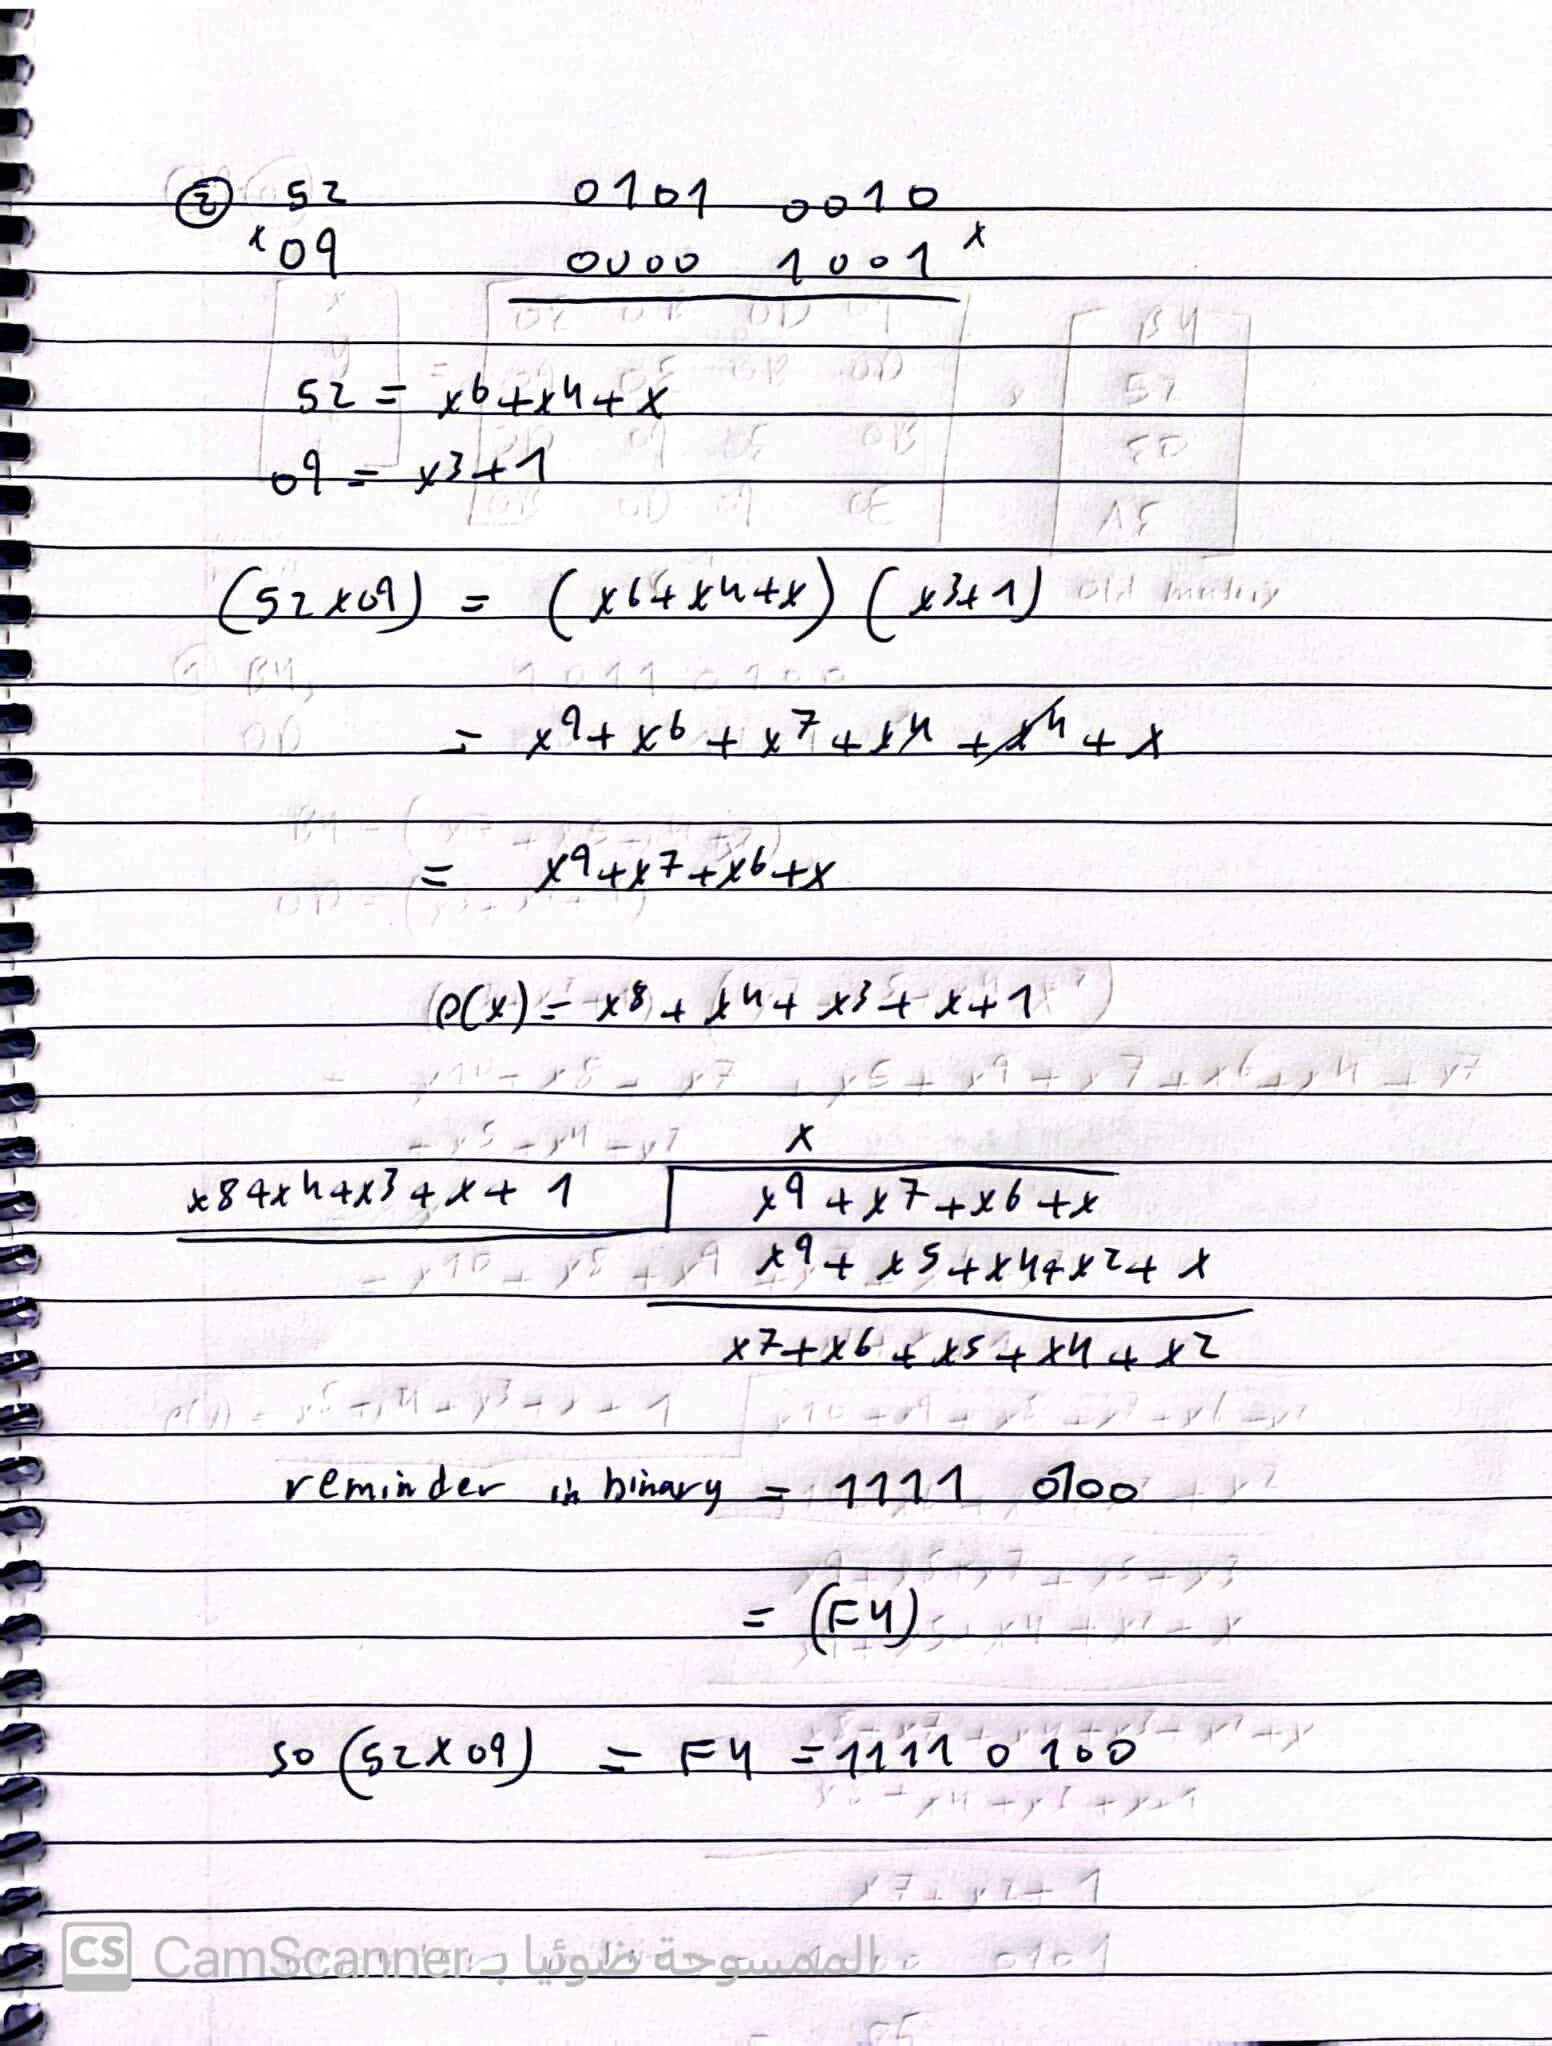 ② 52 0101 0010
x 09 0000 1001 x
52 = x6+x4+x
09 = x3+1
(52x09) = (x6+x4+x) (x3+1)
= x9+x6+x7+x4+x4+x
= x9+x7+x6+x
P(x) = x8+x4+x3+x+1
x
x8+x4+x3+x+1 x9+x7+x6+x
x9+x5+x4+x2+x
x7+x6+x5+x4+x2
reminder in binary = 1111 0100
= (F4)
so (52x09) = F4 = 11110100
CS CamScanner الممسوحة ضوئيا بـ